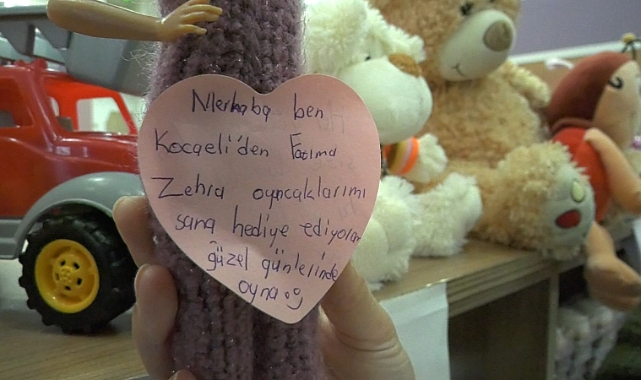 Merhaba ben
Kocaeli'den Fatıma
Zehra oyuncaklarımı
sana hediye ediyorum
güzel günlerinde
oyna